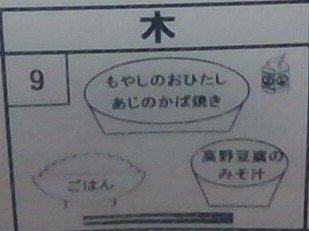 木
9
もやしのおひたし
あじのかば焼き
ごはん
高野豆腐の
みそ汁